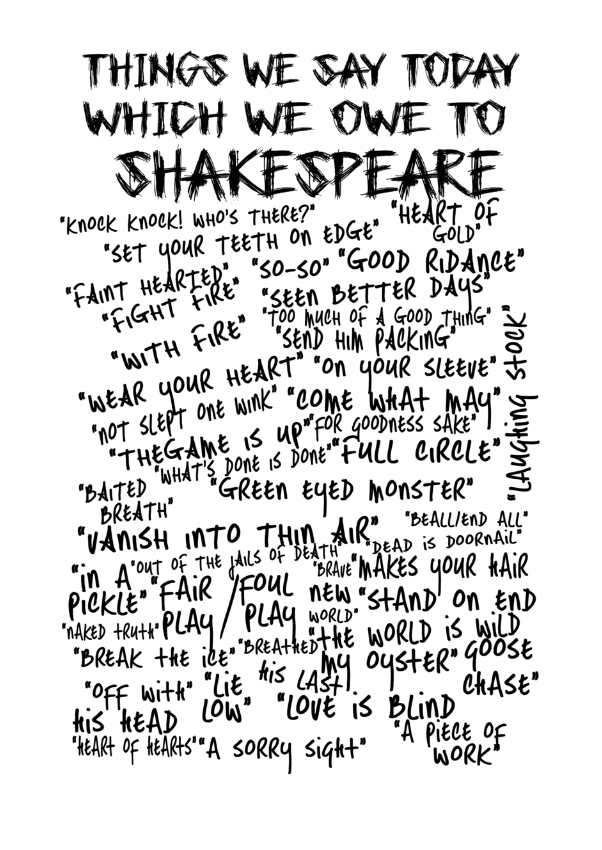 THINGS WE SAY TODAY
WHICH WE OWE TO
SHAKESPEARE
"KNOCK KNOCK! WHO'S THERE?"
"HEART OF
GOLD"
"SET YOUR TEETH ON EDGE"
"FAINT HEARTED"
"SO-SO" "GOOD RIDANCE"
"FIGHT FIRE"
"WITH FIRE"
"SEEN BETTER DAYS"
"TOO MUCH OF A GOOD THING"
"SEND HIM PACKING"
"LAUGHING STOCK"
"WEAR YOUR HEART" "ON YOUR SLEEVE"
"NOT SLEPT ONE WINK" "COME WHAT MAY"
"THEGAME IS UP" "FOR GOODNESS SAKE"
"WHAT'S DONE IS DONE" "FULL CIRCLE"
"BAITED
BREATH"
"GREEN EYED MONSTER"
"VANISH INTO THIN AIR"
"BEALL/END ALL"
"DEAD IS DOORNAIL"
"IN A
PICKLE"
"OUT OF THE JAILS OF DEATH"
"FAIR
PLAY
/FOUL
PLAY
"BRAVE
NEW
WORLD"
"MAKES YOUR HAIR
"STAND ON END
"NAKED TRUTH"
"BREAK THE ICE"
"BREATHED
HIS LAST"
"THE WORLD IS
MY OYSTER"
WILD
GOOSE
CHASE"
"OFF WITH"
HIS HEAD
"LIE
LOW"
"LOVE IS BLIND
"HEART OF HEARTS" "A SORRY SIGHT"
"A PIECE OF
WORK"